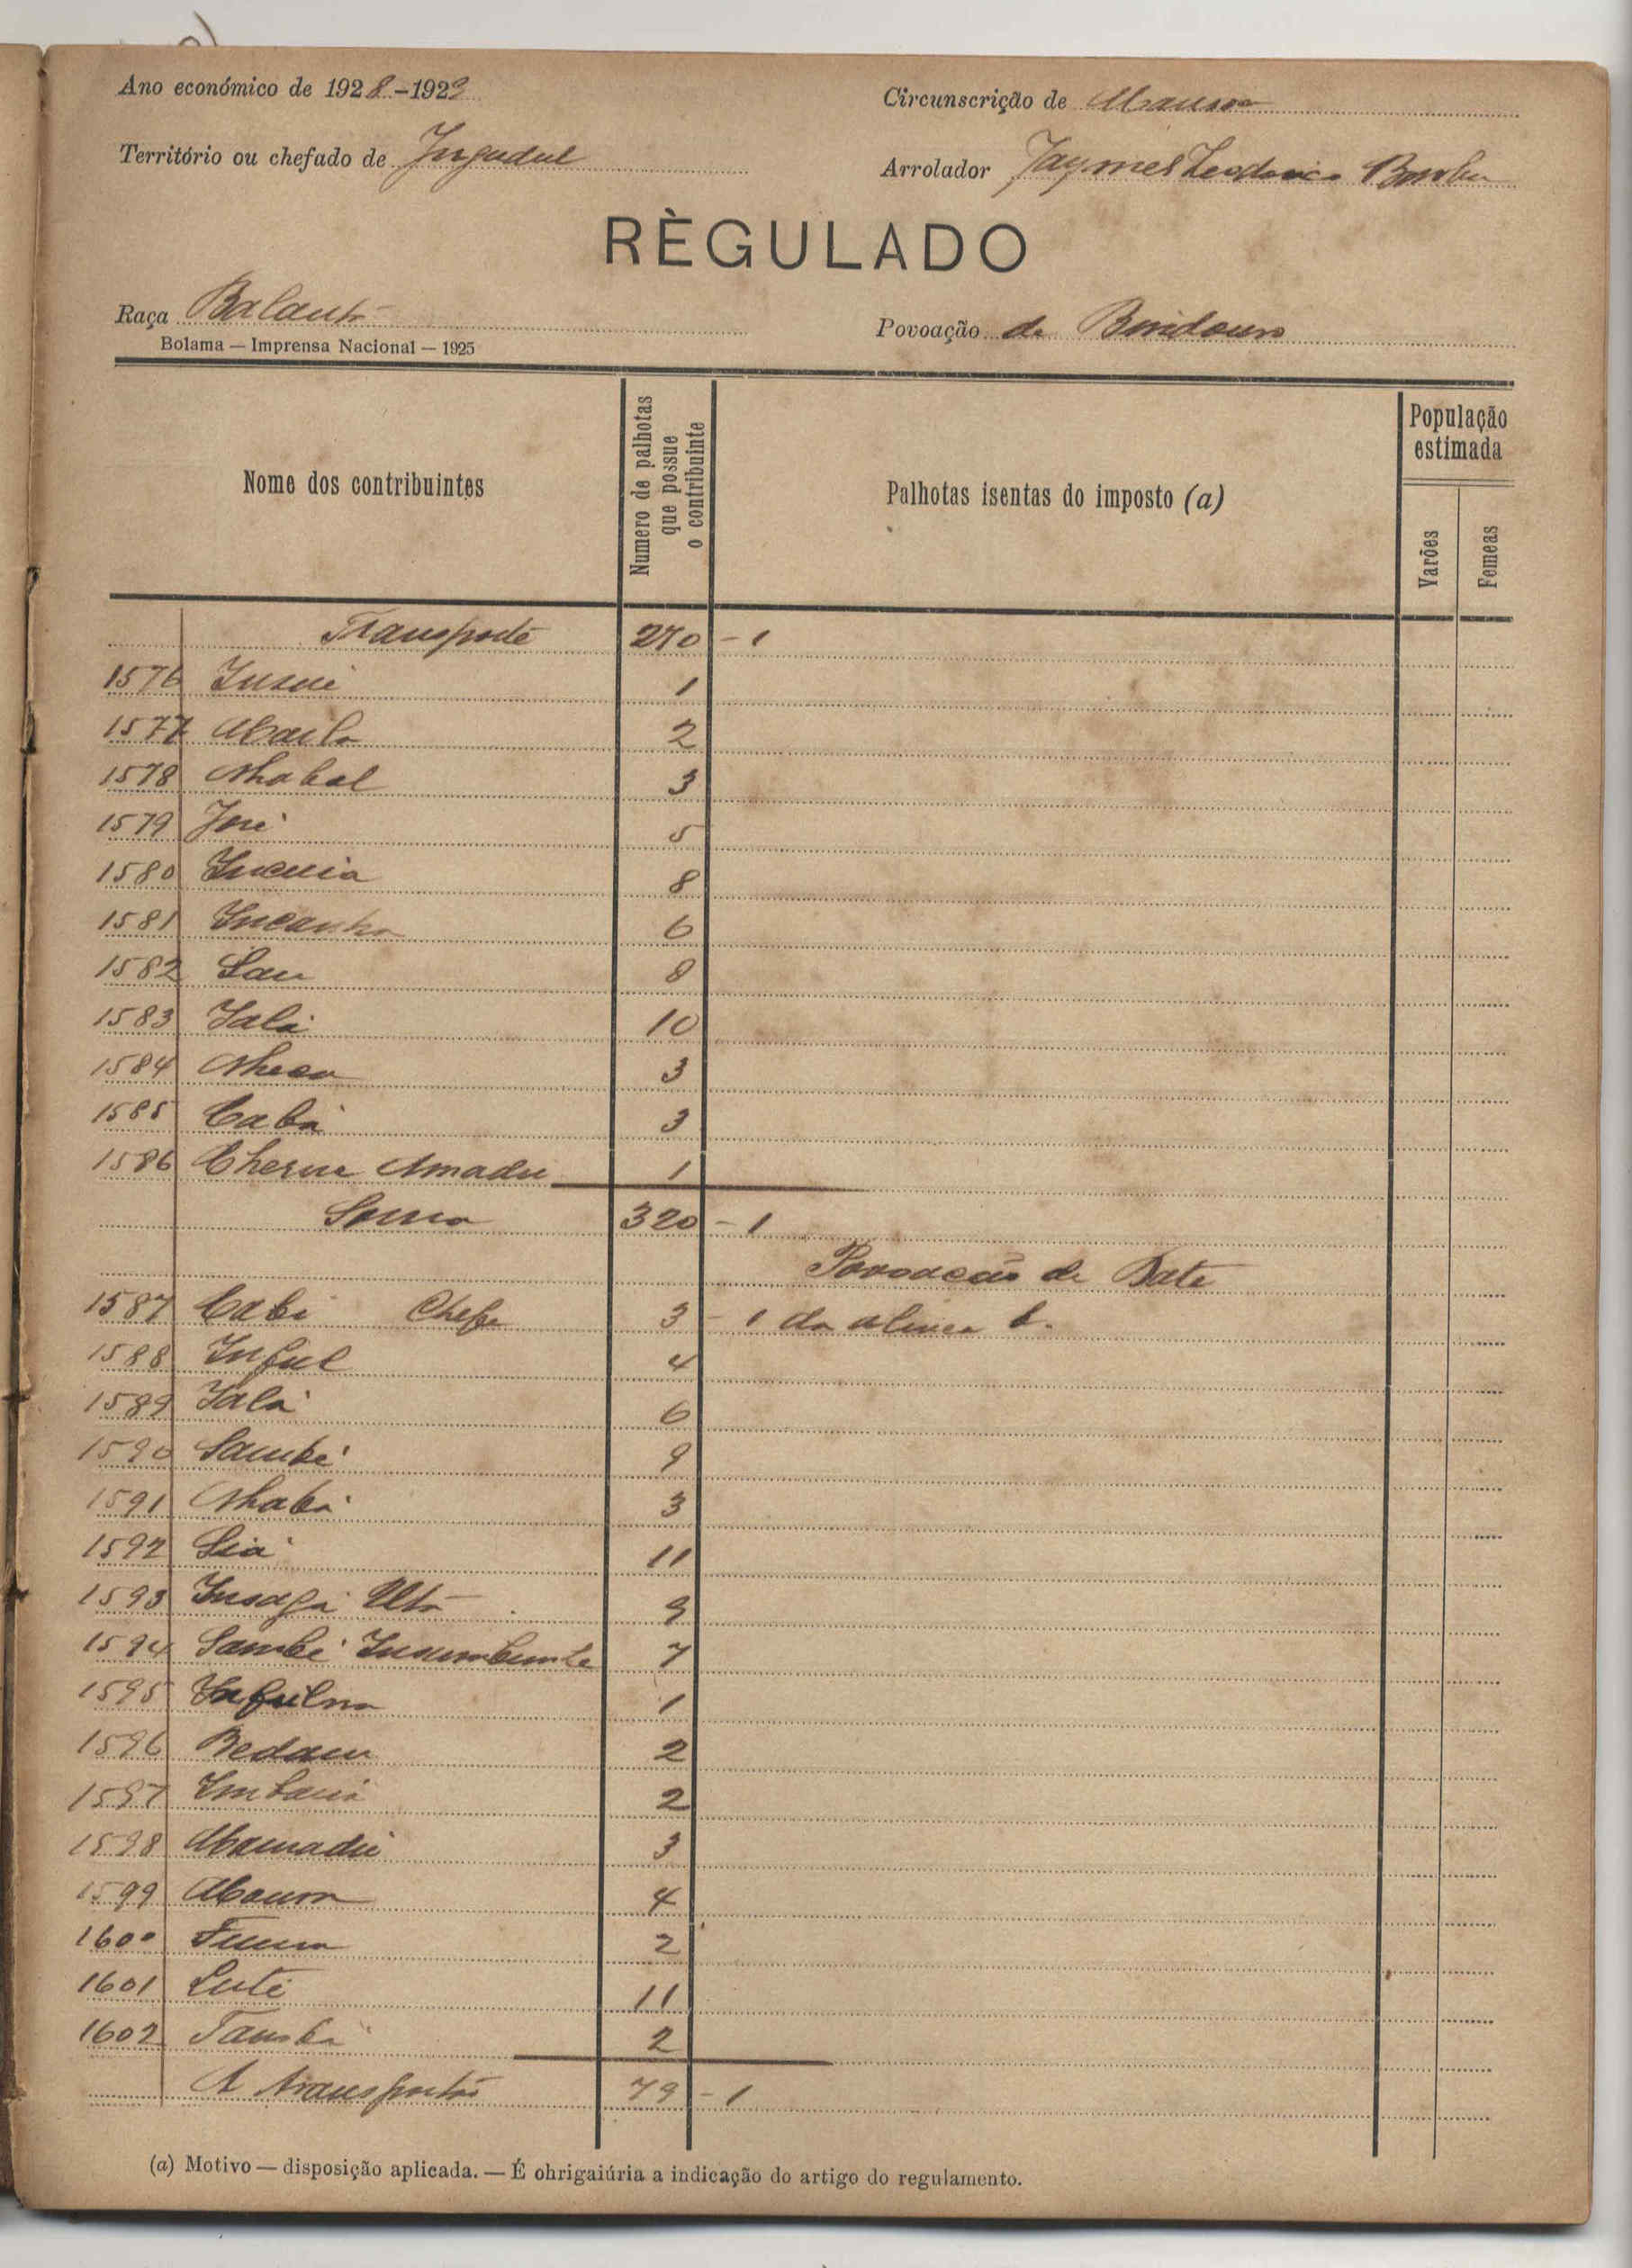 Ano económico de 1928-1929
Circunscrição de Mansoa
Território ou chefado de Jugudul
Arrolador Jaymes
RÈGULADO
Raça Balanta
Povoação de
Bolama — Imprensa Nacional — 1925
Nome dos contribuintes
Numero de palhotas que possue o contribuinte
Palhotas isentas do imposto (a)
População estimada
Varões
Femeas
Transporte 270 - 1
1576 1
1577 2
1578 Nhabal 3
1579 José 5
1580 8
1581 6
1582 San 8
1583 Ialá 10
1584 3
1585 Cabá 3
1586 Cherno Amadu 1
Soma 320 - 1
Povoação de Bate
1587 Cabi Chefe 3 - 1 da alinea b.
1588 Inful 4
1589 Ialá 6
1590 Sambé 9
1591 Nhabá 3
1592 Siá 11
1593 9
1594 Sambé 7
1595 1
1596 Bedam 2
1597 2
1598 Mamadú 3
1599 4
1600 2
1601 Luté 11
1602 Tambá 2
A transportar 79 - 1
(a) Motivo — disposição aplicada. — É ohrigaiúria a indicação do artigo do regulamento.